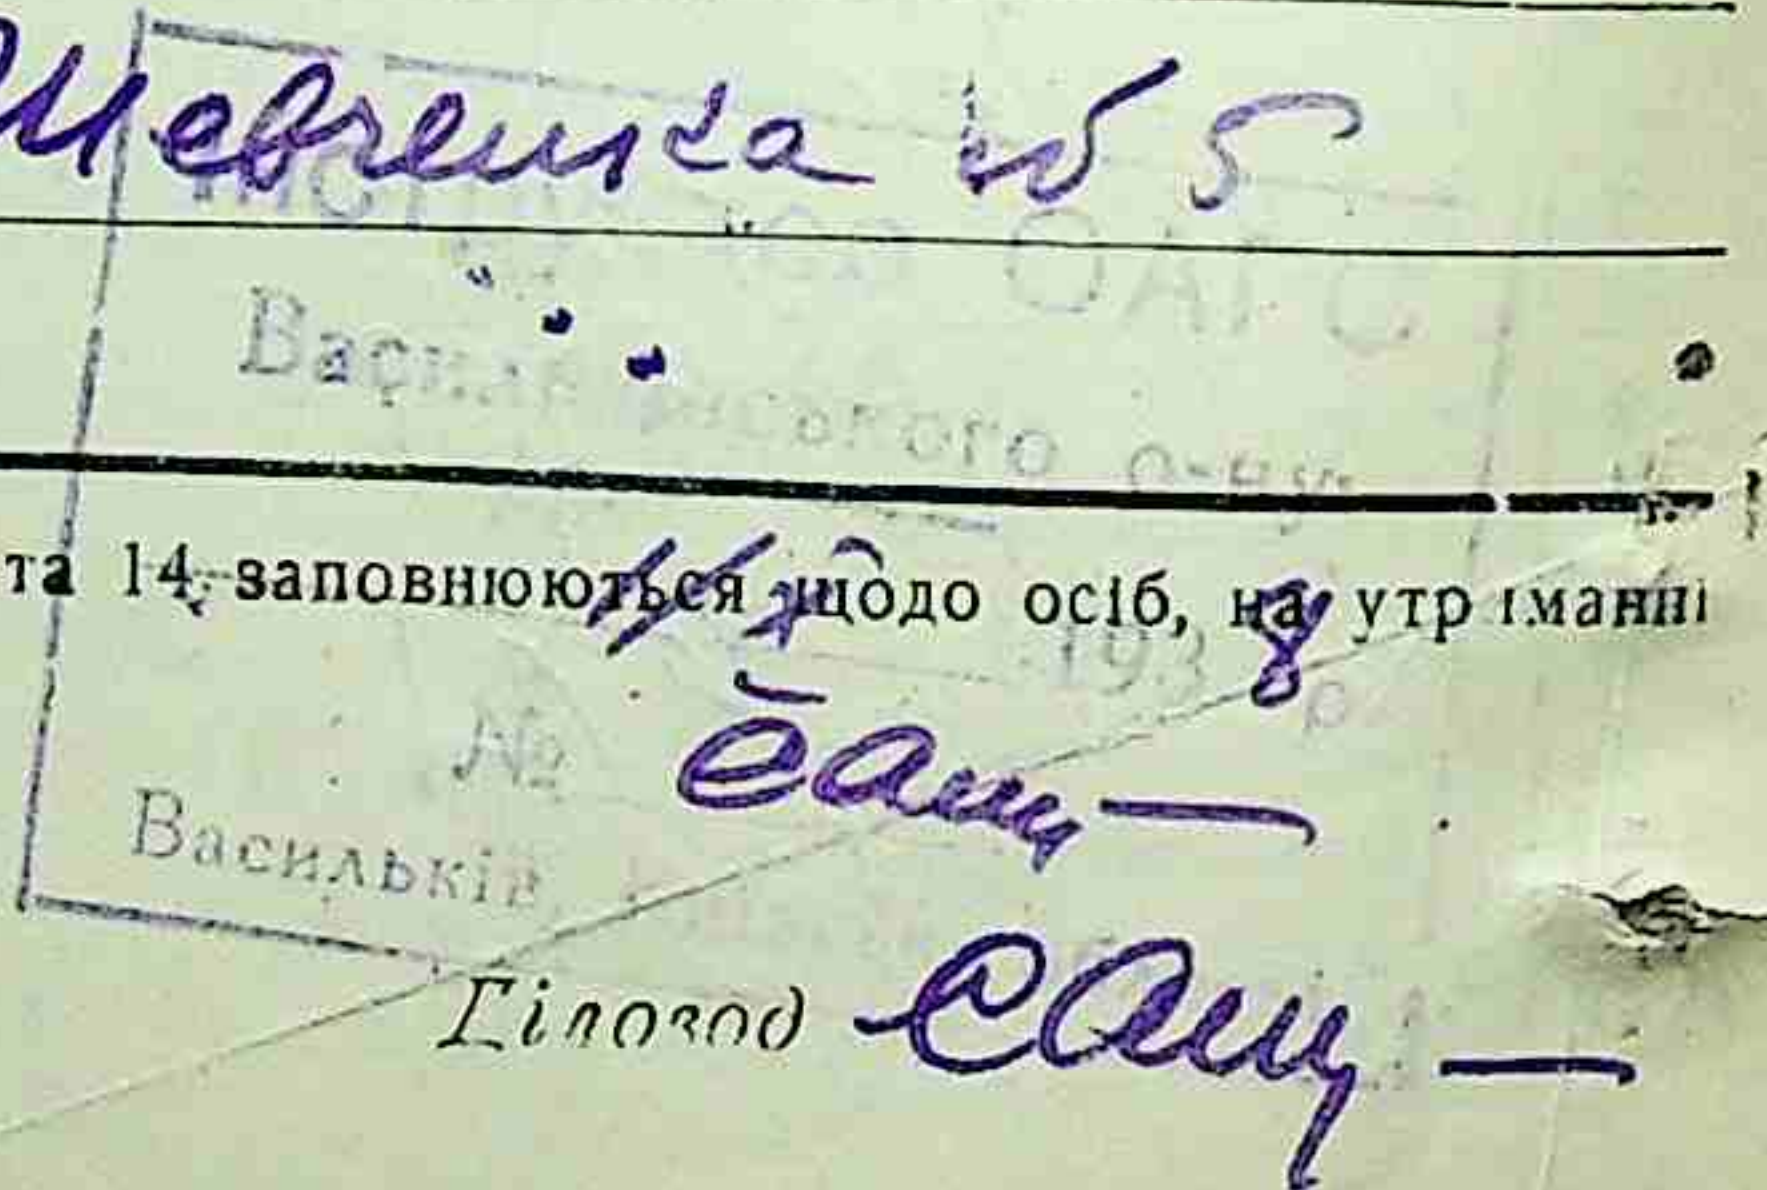 Шевченка № 5
ОАГС
Васильківського р-ну
та 14 заповнюються щодо осіб, на утриманні
193 8 р
№
Васильків
Діловод